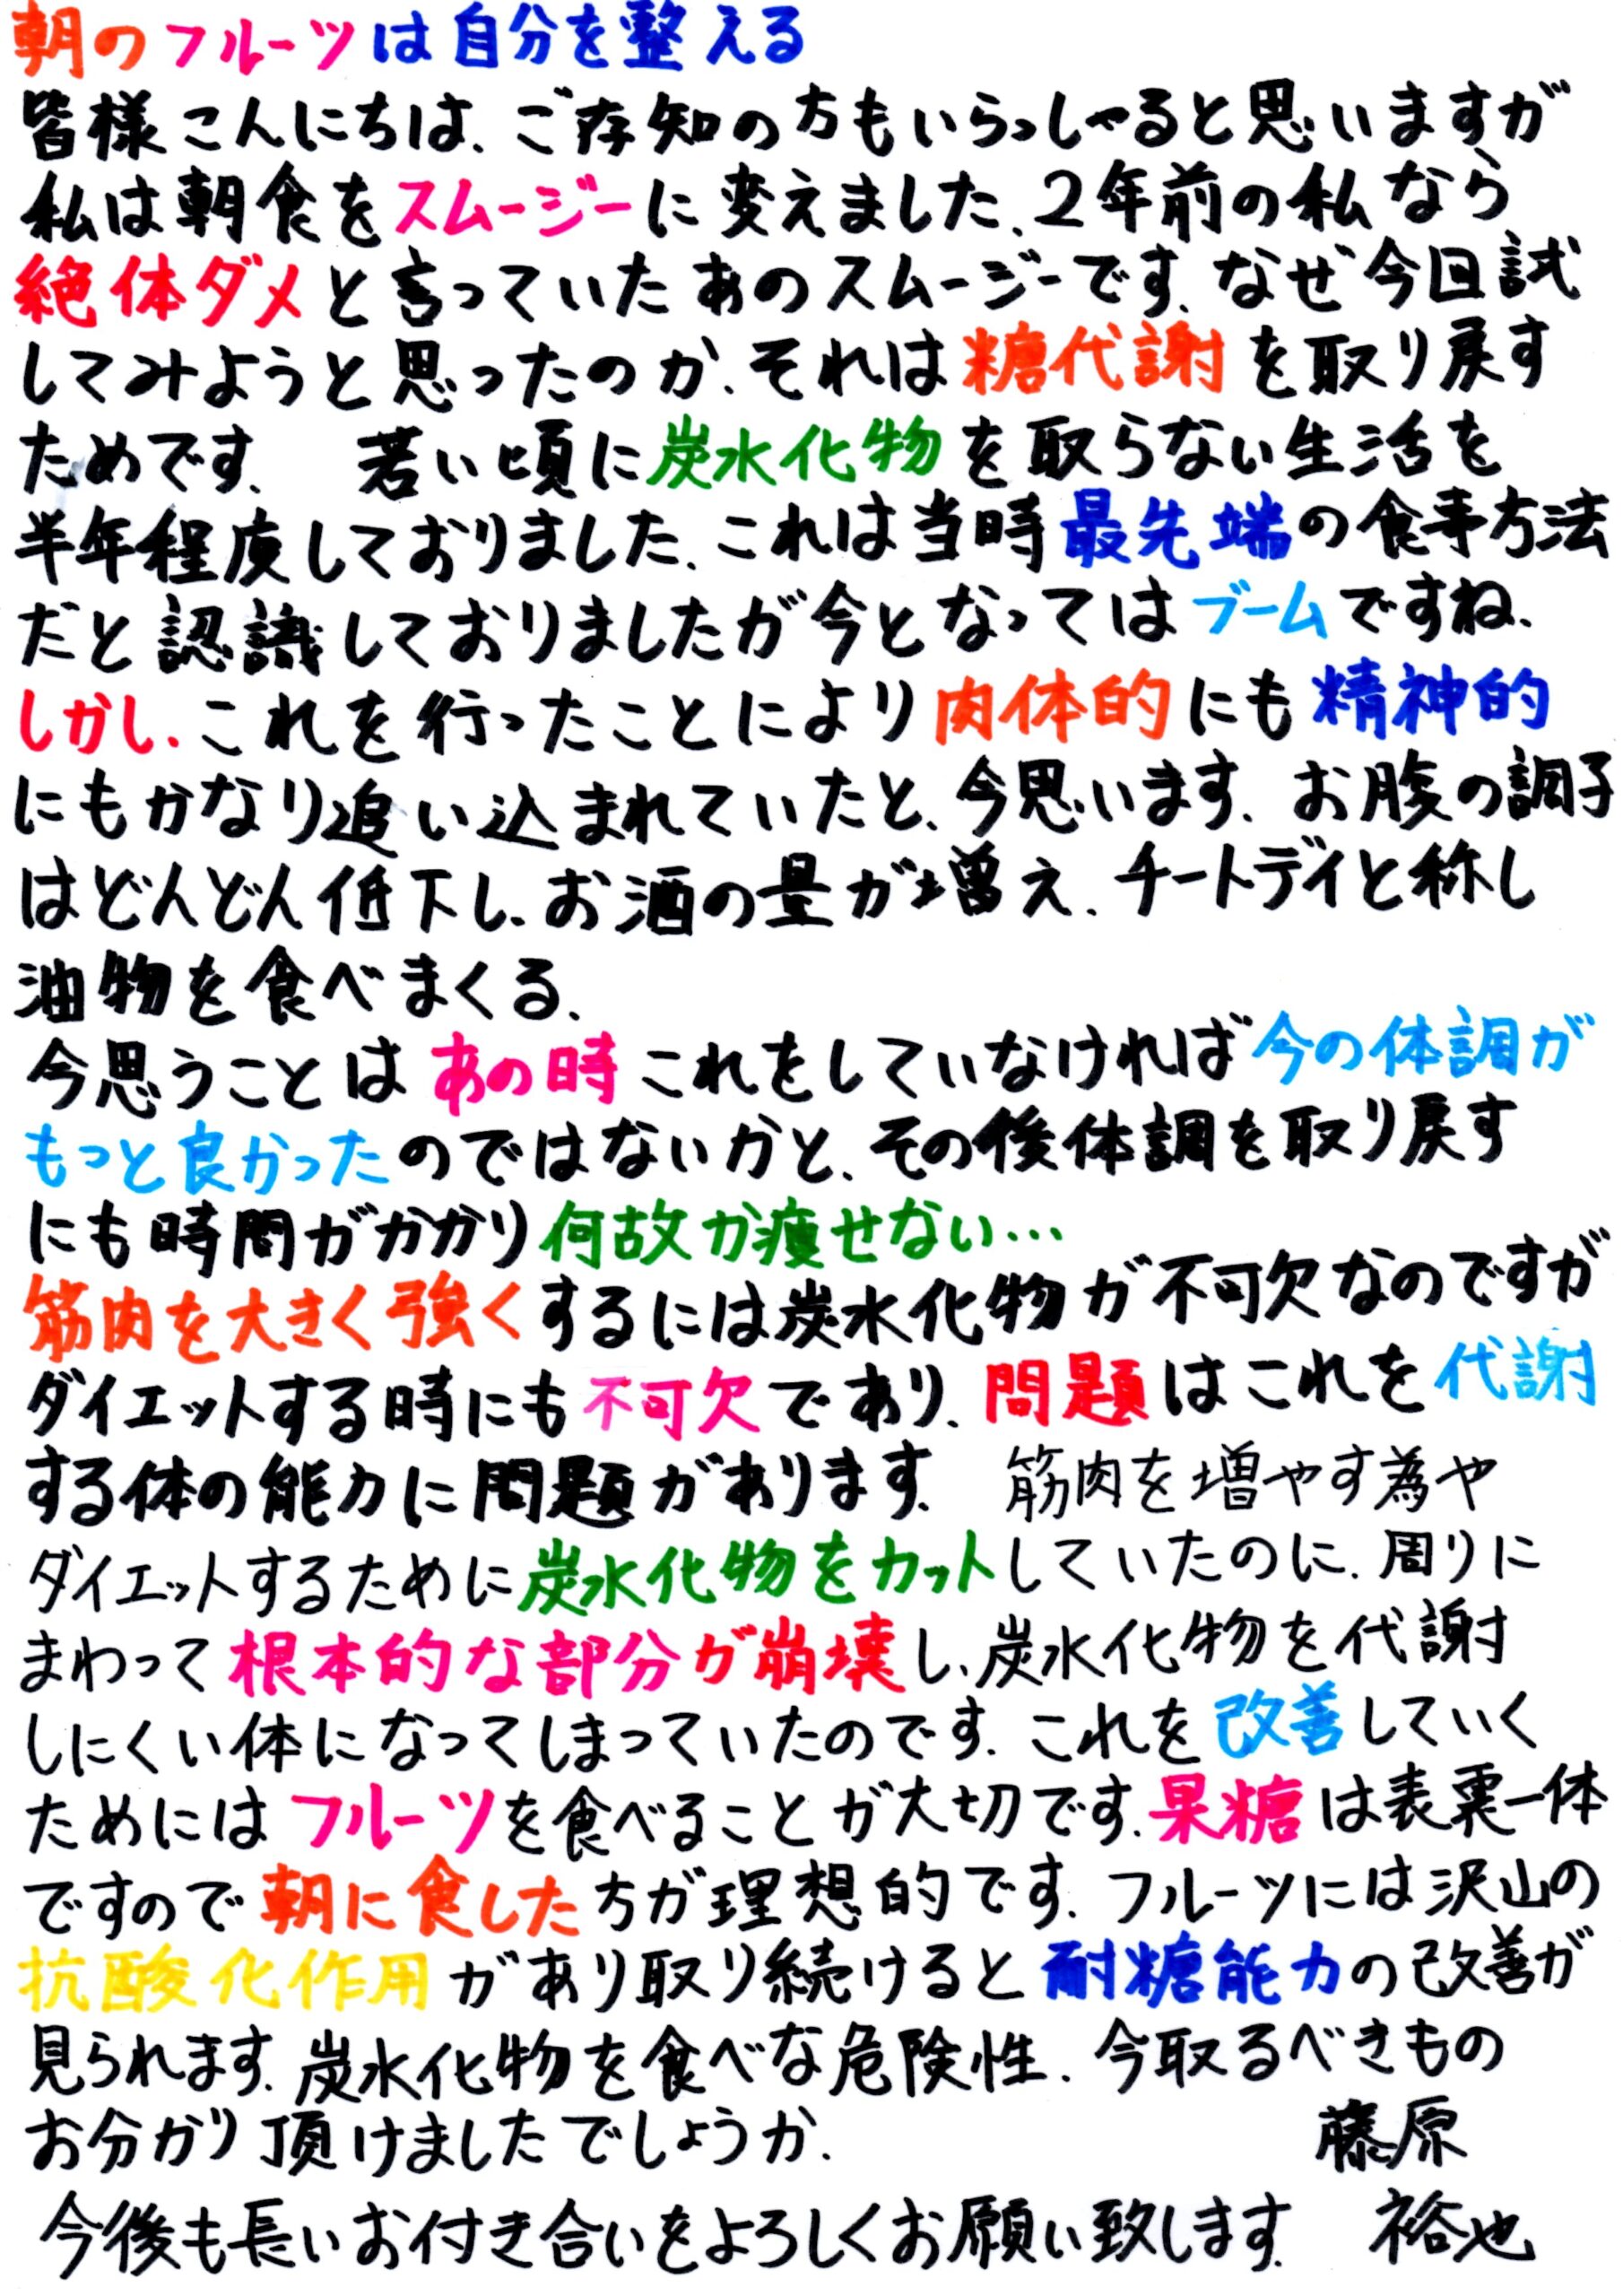 朝のフルーツは自分を整える
皆様こんにちは、ご存知の方もいらっしゃると思いますが
私は朝食をスムージーに変えました、2年前の私なら
絶体ダメと言っていたあのスムージーです、なぜ今回試
してみようと思ったのか、それは糖代謝を取り戻す
ためです、 若い頃に炭水化物を取らない生活を
半年程度しておりました、これは当時最先端の食事方法
だと認識しておりましたが今となってはブームですね、
しかし、これを行ったことにより肉体的にも精神的
にもかなり追い込まれていたと、今思います、お腹の調子
はどんどん低下し、お酒の量が増え、チートデイと称し
油物を食べまくる、
今思うことはあの時これをしていなければ今の体調が
もっと良かったのではないかと、その後体調を取り戻す
にも時間がかかり何故か痩せない…
筋肉を大きく強くするには炭水化物が不可欠なのですが
ダイエットする時にも不可欠であり、問題はこれを代謝
する体の能力に問題があります、 筋肉を増やす為や
ダイエットするために炭水化物をカットしていたのに、周りに
まわって根本的な部分が崩壊し、炭水化物を代謝
しにくい体になってしまっていたのです、これを改善していく
ためにはフルーツを食べることが大切です、果糖は表裏一体
ですので朝に食した方が理想的です、フルーツには沢山の
抗酸化作用があり取り続けると耐糖能力の改善が
見られます、炭水化物を食べな危険性、今取るべきもの
お分かり頂けましたでしょうか、 藤原
今後も長いお付き合いをよろしくお願い致します、 裕也